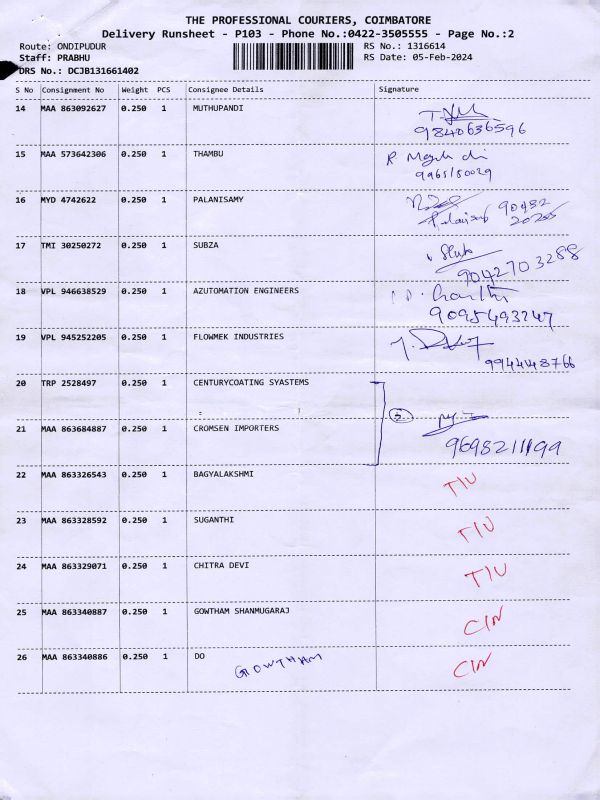 THE PROFESSIONAL COURIERS, COIMBATORE
Delivery Runsheet - P103 - Phone No.:0422-3505555 - Page No.:2
Route: ONDIPUDUR RS No.: 1316614
Staff: PRABHU RS Date: 05-Feb-2024
DRS No.: DCJB131661402
S No Consignment No Weight PCS Consignee Details Signature
14 MAA 863092627 0.250 1 MUTHUPANDI
9840636596
15 MAA 573642306 0.250 1 THAMBU R
16 MYD 4742622 0.250 1 PALANISAMY
Palanisamy 90482
17 TMI 30250272 0.250 1 SUBZA
9042703288
18 VPL 946638529 0.250 1 AZUTOMATION ENGINEERS
9095493247
19 VPL 945252205 0.250 1 FLOWMEK INDUSTRIES
9944448766
20 TRP 2528497 0.250 1 CENTURYCOATING SYASTEMS
21 MAA 863684887 0.250 1 CROMSEN IMPORTERS
22 MAA 863326543 0.250 1 BAGYALAKSHMI T/U
23 MAA 863328592 0.250 1 SUGANTHI T/U
24 MAA 863329071 0.250 1 CHITRA DEVI T/U
25 MAA 863340887 0.250 1 GOWTHAM SHANMUGARAJ C/N
26 MAA 863340886 0.250 1 DO GOWTHAM C/N